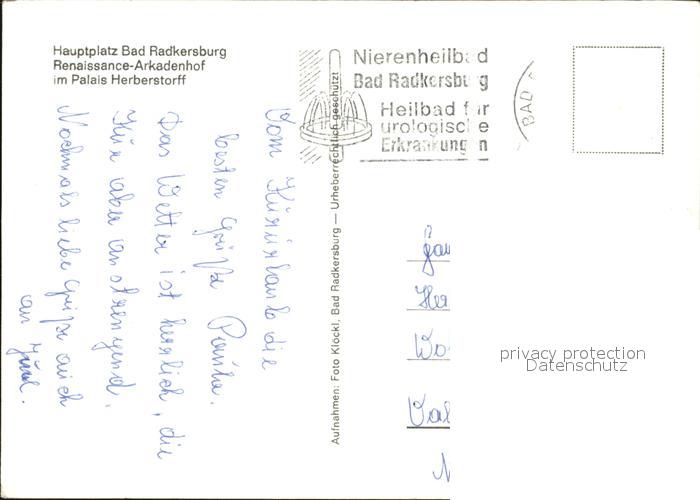 Hauptplatz Bad Radkersburg
Renaissance-Arkadenhof
im Palais Herberstorff
Nierenheilbad
Bad Radkersburg
Heilbad für
urologische
Erkrankungen
BAD
Aufnahmen: Foto Klöckl, Bad Radkersburg — Urheberrechtlich geschützt
Vom Kururlaub die
besten Grüße
Das Wetter ist herrlich, die
Kur aber anstrengend.
Nochmals liebe Grüße auch
an
privacy protection
Datenschutz